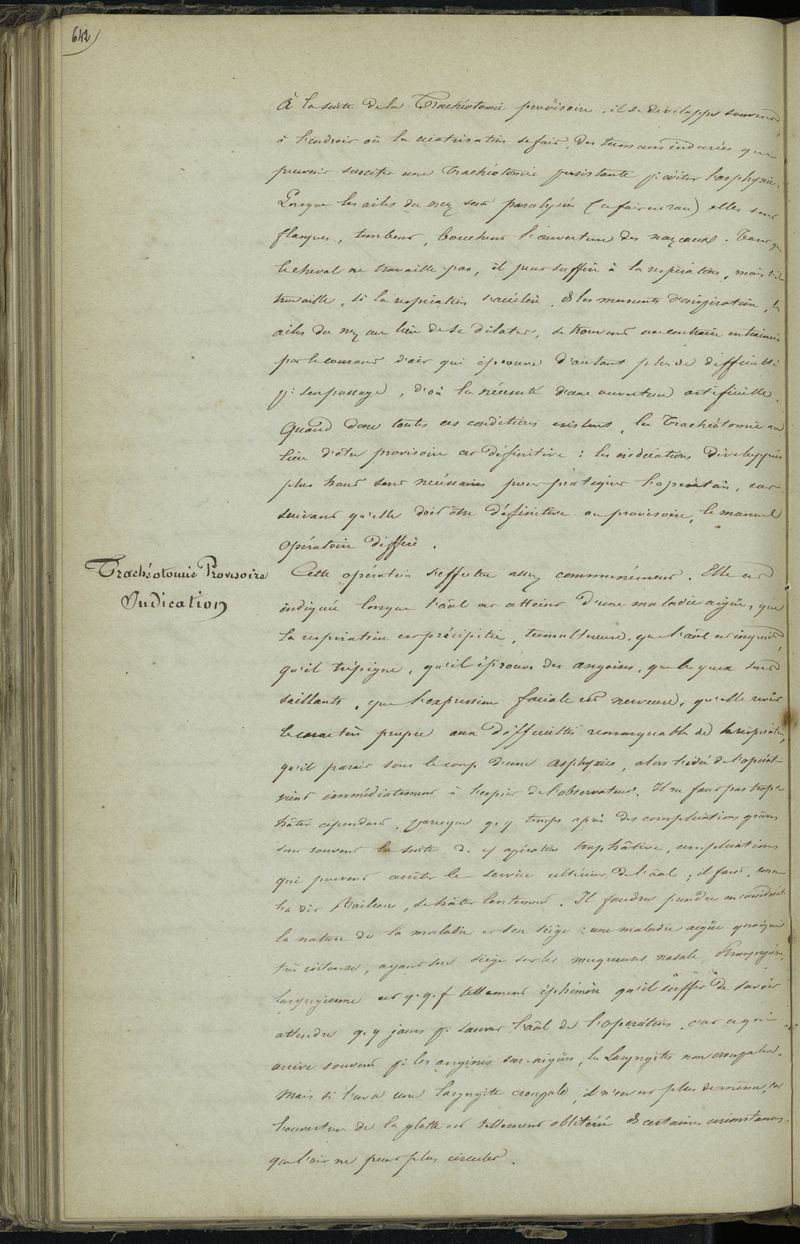 642
À la suite de la Trachéotomie provisoire, il se développe souvent
à l'endroit où la cicatrisation se fait, des tumeurs indurées qui
peuvent susciter une trachéotomie persistante pr éviter l'asphyxie.
Lorsque les ailes du nez sont paralysées elles sont
flasques, tombent, bouchent l'ouverture des naseaux. Tant que
le cheval ne travaille pas, il peut suffire à la respiration, mais s'il
travaille, si la respiration s'accélère, ds les moments d'inspiration, les
ailes du nez au lieu de se dilater, se trouvent au contraire entrainées
par le courant d'air qui éprouve d'autant plus de difficulté
pr son passage, d'où la nécessité d'une ouverture artificielle.
Quand donc toutes ces conditions existent, la Trachéotomie au
lieu d'être provisoire est définitive : les considérations développées
plus haut sont nécessaires pour pratiquer l'opération, car
suivant qu'elle doit être définitive ou provisoire, le manuel
opératoire diffère.
Trachéotomie Provisoire
Indication
Cette opération s'effectue assez communément. Elle est
indiquée lorsque l'aāl est atteint d'une maladie aigüe, que
la respiration est précipitée, tumultueuse, que l'aāl est inquiet,
qu'il trépigne, qu'il éprouve des angoisses, que les yeux sont
saillants, que l'expression faciale est nerveuse, qu'elle revêt
le caractère propre aux difficultés remarquables de la respiration,
qu'il parait sous le coup d'une asphyxie, alors l'idée de l'opération
vient immédiatement à l'esprit de l'observateur. Il ne faut pas trop se
hâter cependant, parceque qq temps après des complications graves
sont souvent la suite de opération trop hâtive, complications
qui peuvent arrêter le service ultérieur de l'aāl ; il faut, comme
l'a dit Boileau, se hâter lentement. Il faudra prendre en considération
la nature de la maladie et son siège : une maladie aigüe quoique
très intense, ayant son siège sur les muqueuses nasale, pharyngienne,
laryngienne est qq f tellement éphémère qu'il suffit de savoir
attendre qq jours pr sauver l'aāl de l'opération, car ce qui
arrive souvent pr les angines sur-aigües, les Laryngites non croupales.
Mais si l'on a une laryngite croupale, il n'en est plus de même, car
l'ouverture de la glotte est tellement oblitérée ds certaines circonstances
que l'air ne peut plus circuler.